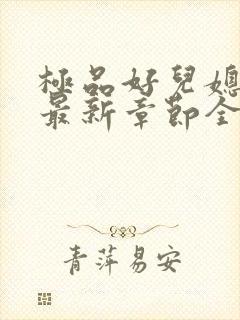 極品好兒媳
最新章節全
青萍易安